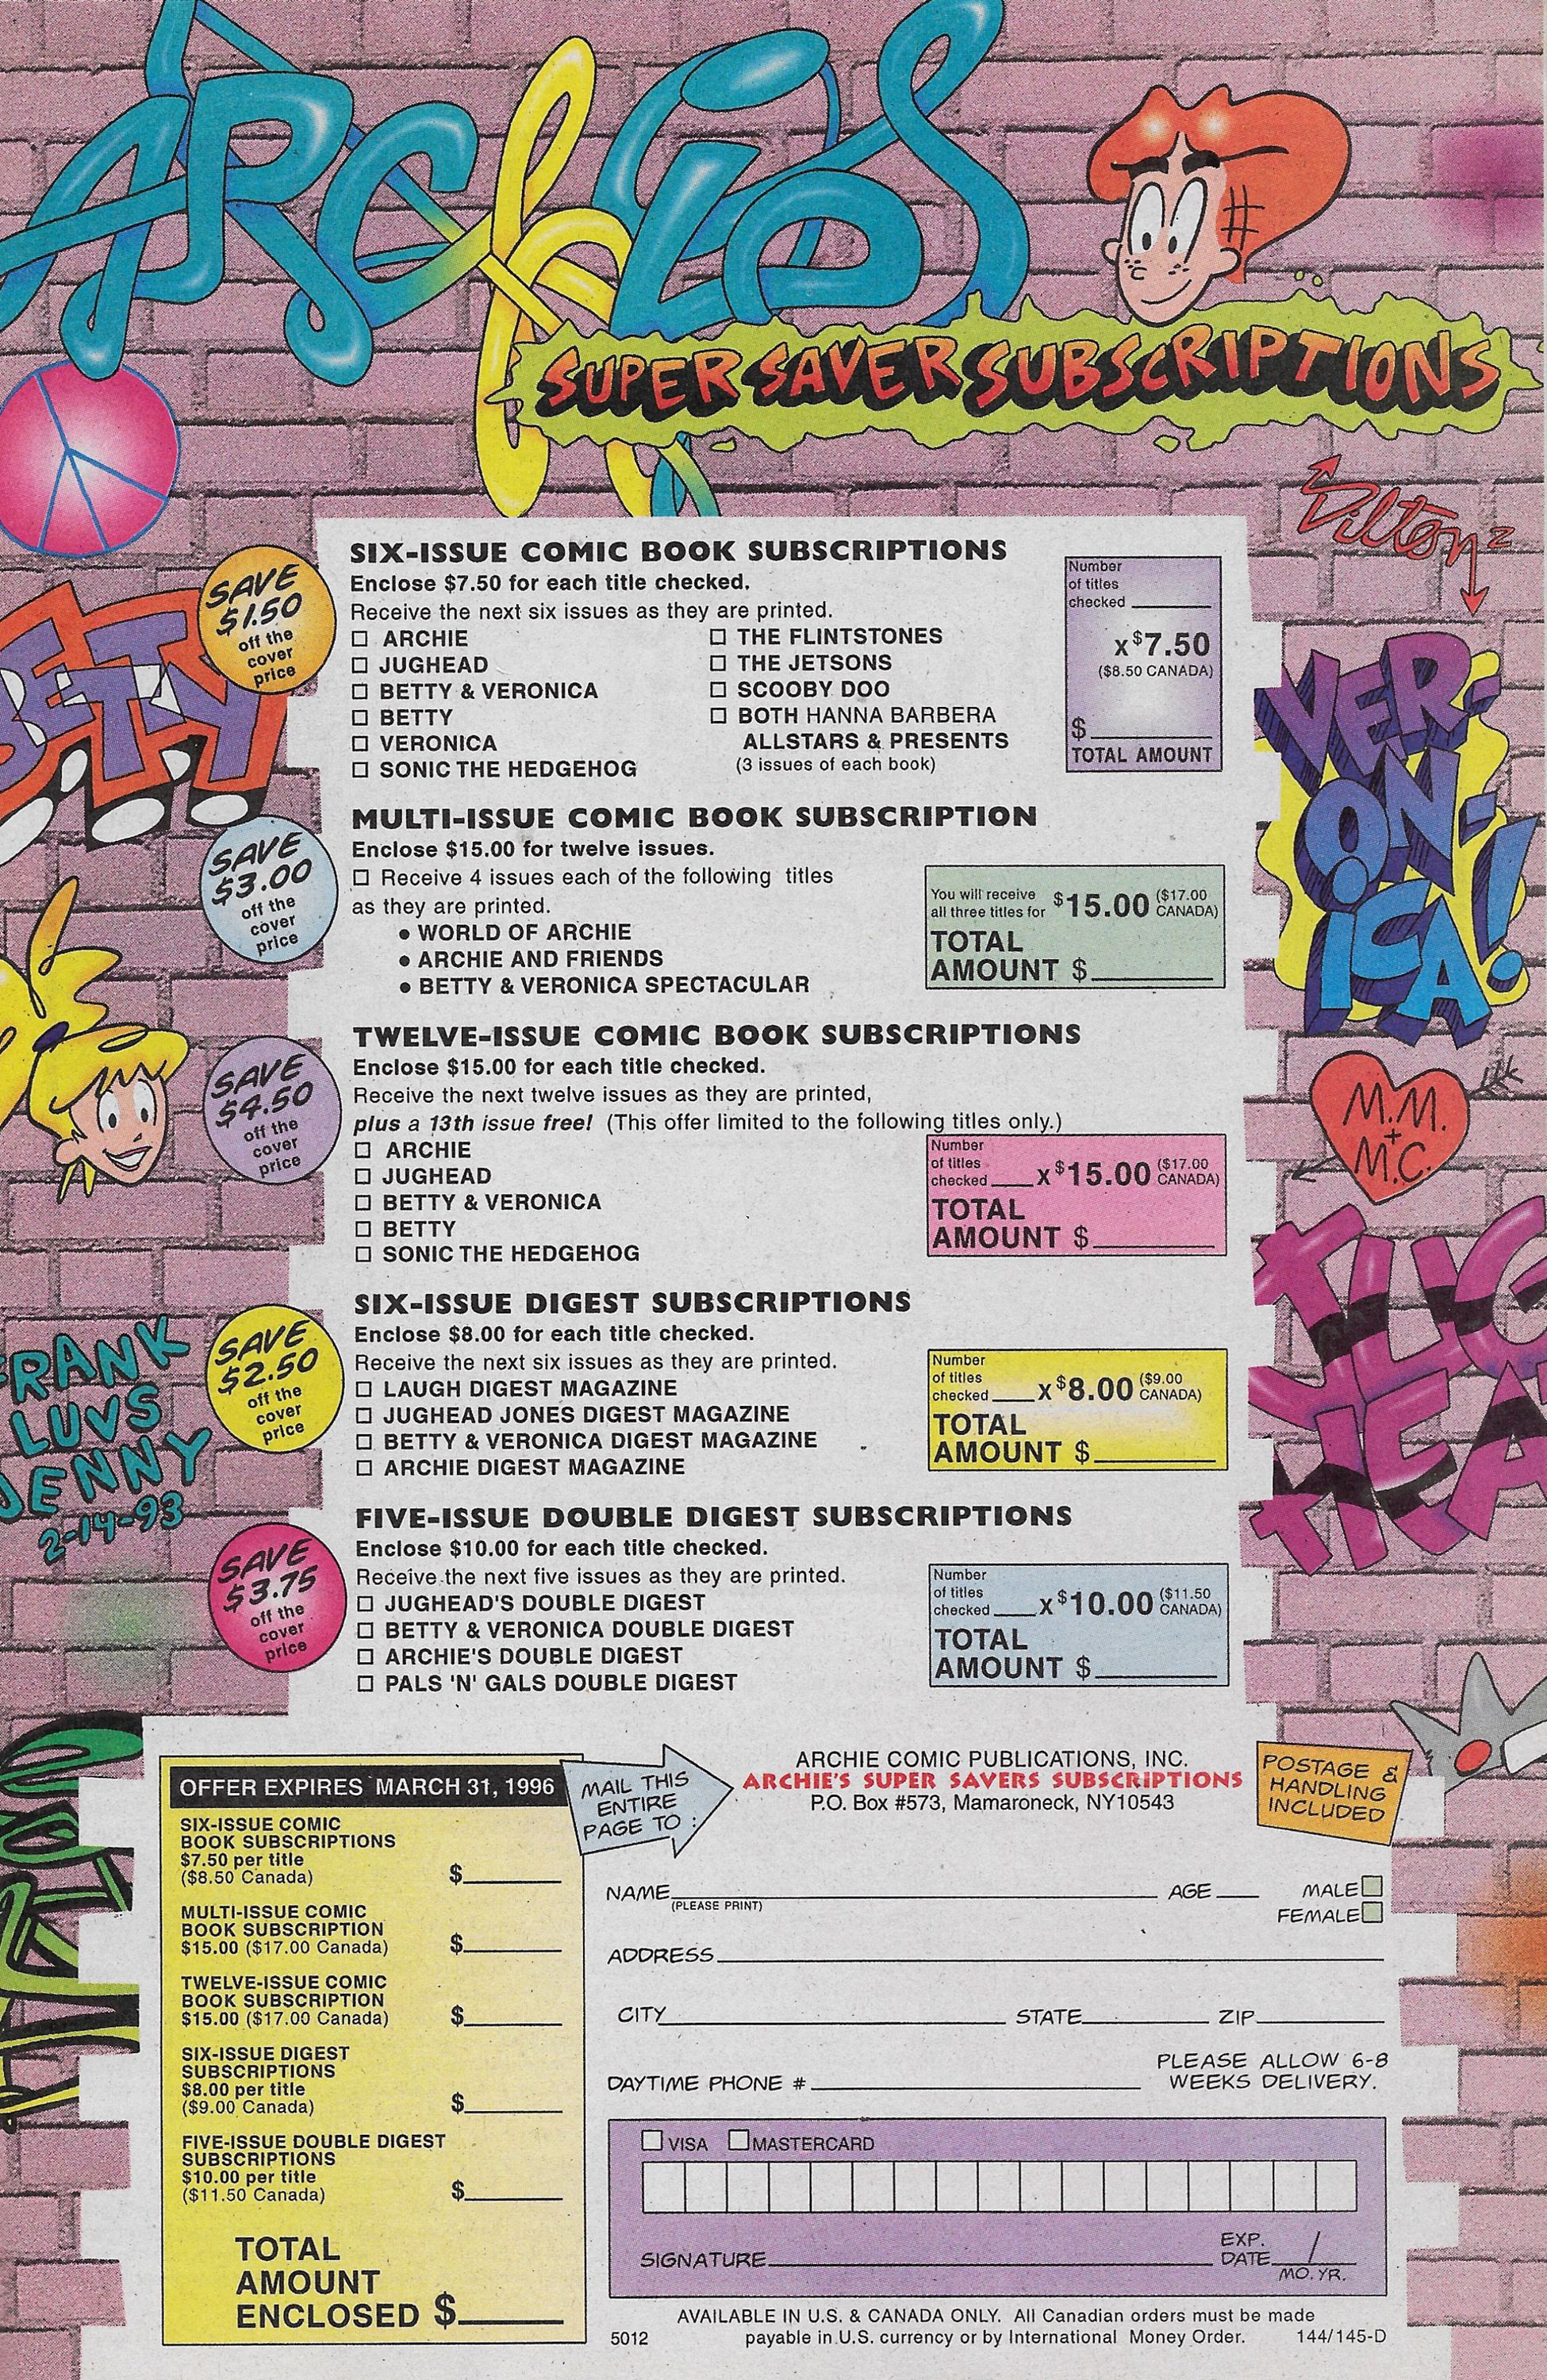 ARCHIE'S
SUPER SAVER SUBSCRIPTIONS
Dilton 2
BETTY
VER-
ON-
ICA!
M.M.
+
M.C.
JUG
HEA
FRANK
LUVS
JENNY
2-14-93
SAVE
$1.50
off the
cover
price
SIX-ISSUE COMIC BOOK SUBSCRIPTIONS
Enclose $7.50 for each title checked.
Receive the next six issues as they are printed.
☐ ARCHIE
☐ JUGHEAD
☐ BETTY & VERONICA
☐ BETTY
☐ VERONICA
☐ SONIC THE HEDGEHOG
☐ THE FLINTSTONES
☐ THE JETSONS
☐ SCOOBY DOO
☐ BOTH HANNA BARBERA
ALLSTARS & PRESENTS
(3 issues of each book)
Number
of titles
checked ______
x $7.50
($8.50 CANADA)
$______
TOTAL AMOUNT
SAVE
$3.00
off the
cover
price
MULTI-ISSUE COMIC BOOK SUBSCRIPTION
Enclose $15.00 for twelve issues.
☐ Receive 4 issues each of the following titles
as they are printed.
• WORLD OF ARCHIE
• ARCHIE AND FRIENDS
• BETTY & VERONICA SPECTACULAR
You will receive
all three titles for $15.00 ($17.00
CANADA)
TOTAL
AMOUNT $______
SAVE
$4.50
off the
cover
price
TWELVE-ISSUE COMIC BOOK SUBSCRIPTIONS
Enclose $15.00 for each title checked.
Receive the next twelve issues as they are printed,
plus a 13th issue free! (This offer limited to the following titles only.)
☐ ARCHIE
☐ JUGHEAD
☐ BETTY & VERONICA
☐ BETTY
☐ SONIC THE HEDGEHOG
Number
of titles
checked ___ x $15.00 ($17.00
CANADA)
TOTAL
AMOUNT $______
SAVE
$2.50
off the
cover
price
SIX-ISSUE DIGEST SUBSCRIPTIONS
Enclose $8.00 for each title checked.
Receive the next six issues as they are printed.
☐ LAUGH DIGEST MAGAZINE
☐ JUGHEAD JONES DIGEST MAGAZINE
☐ BETTY & VERONICA DIGEST MAGAZINE
☐ ARCHIE DIGEST MAGAZINE
Number
of titles
checked ___ x $8.00 ($9.00
CANADA)
TOTAL
AMOUNT $______
SAVE
$3.75
off the
cover
price
FIVE-ISSUE DOUBLE DIGEST SUBSCRIPTIONS
Enclose $10.00 for each title checked.
Receive the next five issues as they are printed.
☐ JUGHEAD'S DOUBLE DIGEST
☐ BETTY & VERONICA DOUBLE DIGEST
☐ ARCHIE'S DOUBLE DIGEST
☐ PALS 'N' GALS DOUBLE DIGEST
Number
of titles
checked ___ x $10.00 ($11.50
CANADA)
TOTAL
AMOUNT $______
OFFER EXPIRES MARCH 31, 1996
SIX-ISSUE COMIC
BOOK SUBSCRIPTIONS
$7.50 per title
($8.50 Canada) $______
MULTI-ISSUE COMIC
BOOK SUBSCRIPTION
$15.00 ($17.00 Canada) $______
TWELVE-ISSUE COMIC
BOOK SUBSCRIPTION
$15.00 ($17.00 Canada) $______
SIX-ISSUE DIGEST
SUBSCRIPTIONS
$8.00 per title
($9.00 Canada) $______
FIVE-ISSUE DOUBLE DIGEST
SUBSCRIPTIONS
$10.00 per title
($11.50 Canada) $______
TOTAL
AMOUNT
ENCLOSED $______
MAIL THIS
ENTIRE
PAGE TO:
ARCHIE COMIC PUBLICATIONS, INC.
ARCHIE'S SUPER SAVERS SUBSCRIPTIONS
P.O. Box #573, Mamaroneck, NY10543
POSTAGE &
HANDLING
INCLUDED
NAME______ AGE___ MALE☐
(PLEASE PRINT)
FEMALE☐
ADDRESS______
CITY______ STATE______ ZIP______
DAYTIME PHONE #______
PLEASE ALLOW 6-8
WEEKS DELIVERY.
☐ VISA ☐ MASTERCARD
SIGNATURE______ EXP.
DATE___/___
MO. YR.
AVAILABLE IN U.S. & CANADA ONLY. All Canadian orders must be made
payable in U.S. currency or by International Money Order.
5012
144/145-D